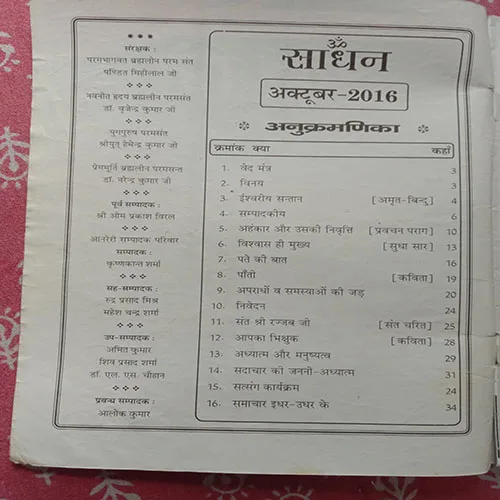 संरक्षक :
परमभागवत ब्रह्मलीन परम संत
पण्डित मिहीलाल जी
नवनीत हृदय ब्रह्मलीन परमसंत
डा. बृजेन्द्र कुमार जी
युगपुरुष परमसंत
श्रीयुत् हेमेन्द्र कुमार जी
प्रेममूर्ति ब्रह्मलीन परमसन्त
डॉ. नरेन्द्र कुमार जी
पूर्व सम्पादक :
श्री ओम प्रकाश विरल
आनरेरी सम्पादक परिवार
सम्पादक :
कृष्णकान्त शर्मा
सह-सम्पादक :
रुद्र प्रसाद मिश्र
महेश चन्द्र शर्मा
उप-सम्पादक :
अमित कुमार
शिव प्रसाद शर्मा
डॉ. एल. एस. चौहान
प्रबन्ध सम्पादक :
आलोक कुमार
ॐ
साधन
अक्टूबर-2016
अनुक्रमणिका
क्रमांक क्या कहाँ
1. वेद मंत्र 3
2. विनय 3
3. ईश्वरीय सन्तान [अमृत-बिन्दु] 4
4. सम्पादकीय 6
5. अहंकार और उसकी निवृत्ति [प्रवचन पराग] 10
6. विश्वास ही मुख्य [सुधा सार] 13
7. पते की बात 16
8. पाँती [कविता] 19
9. अपराधों व समस्याओं की जड़ 20
10. निवेदन 24
11. संत श्री रज्जब जी [संत चरित] 25
12. आपका भिक्षुक [कविता] 28
13. अध्यात्म और मनुष्यत्व 29
14. सदाचार की जननी-अध्यात्म 31
15. सत्संग कार्यक्रम 24
16. समाचार इधर-उधर के 34